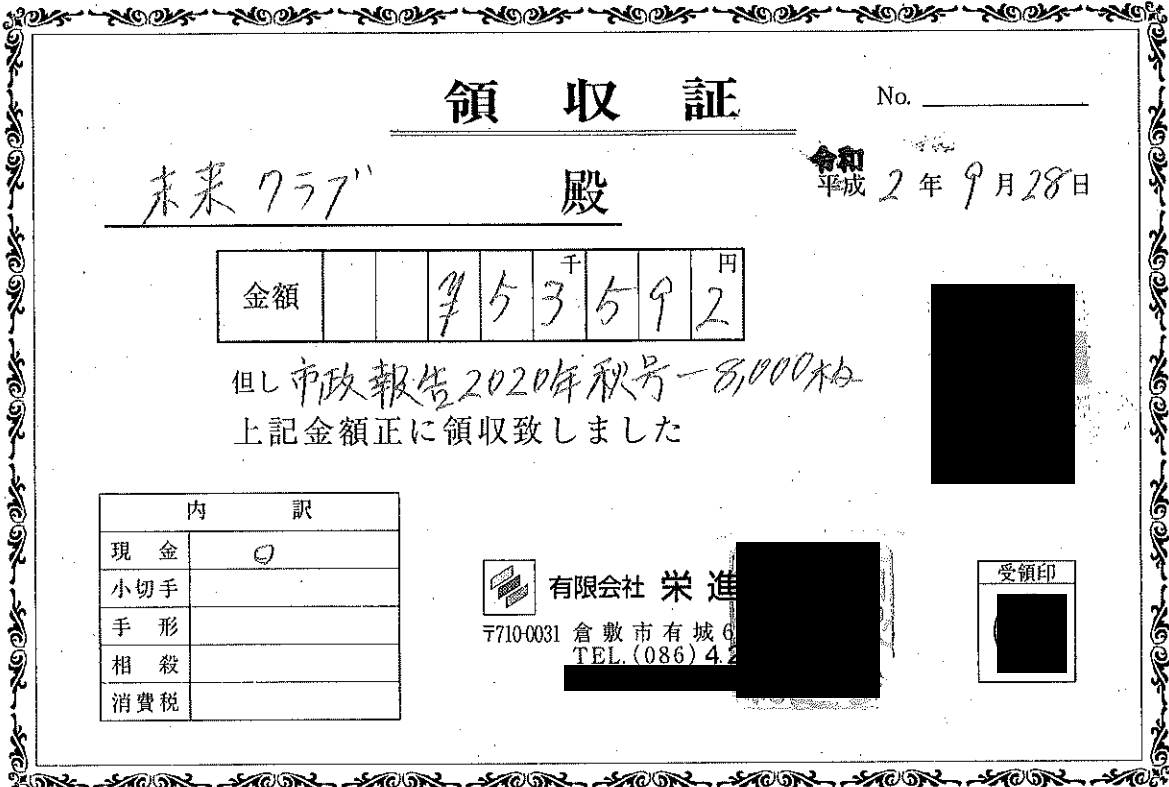 領収証
No.
未来クラブ 殿
令和
平成 2年9月28日
金額 ¥53千592円
但し 市政報告2020年秋号-8,000枚
上記金額正に領収致しました
内訳
現金 ○
小切手
手形
相殺
消費税
有限会社 栄進
〒710-0031 倉敷市有城6
TEL.(086)4.2
受領印